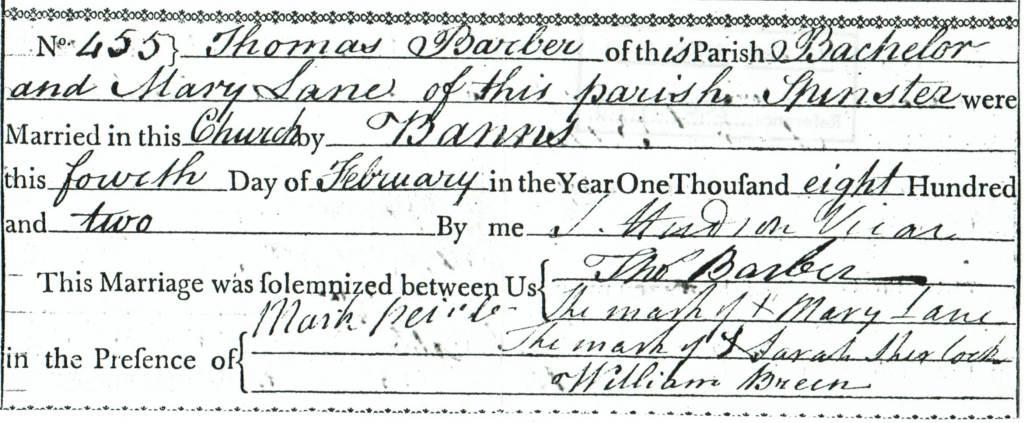 No. 455} Thomas Barber of this Parish Bachelor
and Mary Lane of this parish Spinster were
Married in this Church by Banns
this fourth Day of February in the Year One Thouſand eight Hundred
and two By me J. Hudson Vicar
This Marriage was ſolemnized between Us { Tho Barber
The mark of X Mary Lane
in the Preſence of { Mark
The mark of X Sarah Sherlock
William Breen